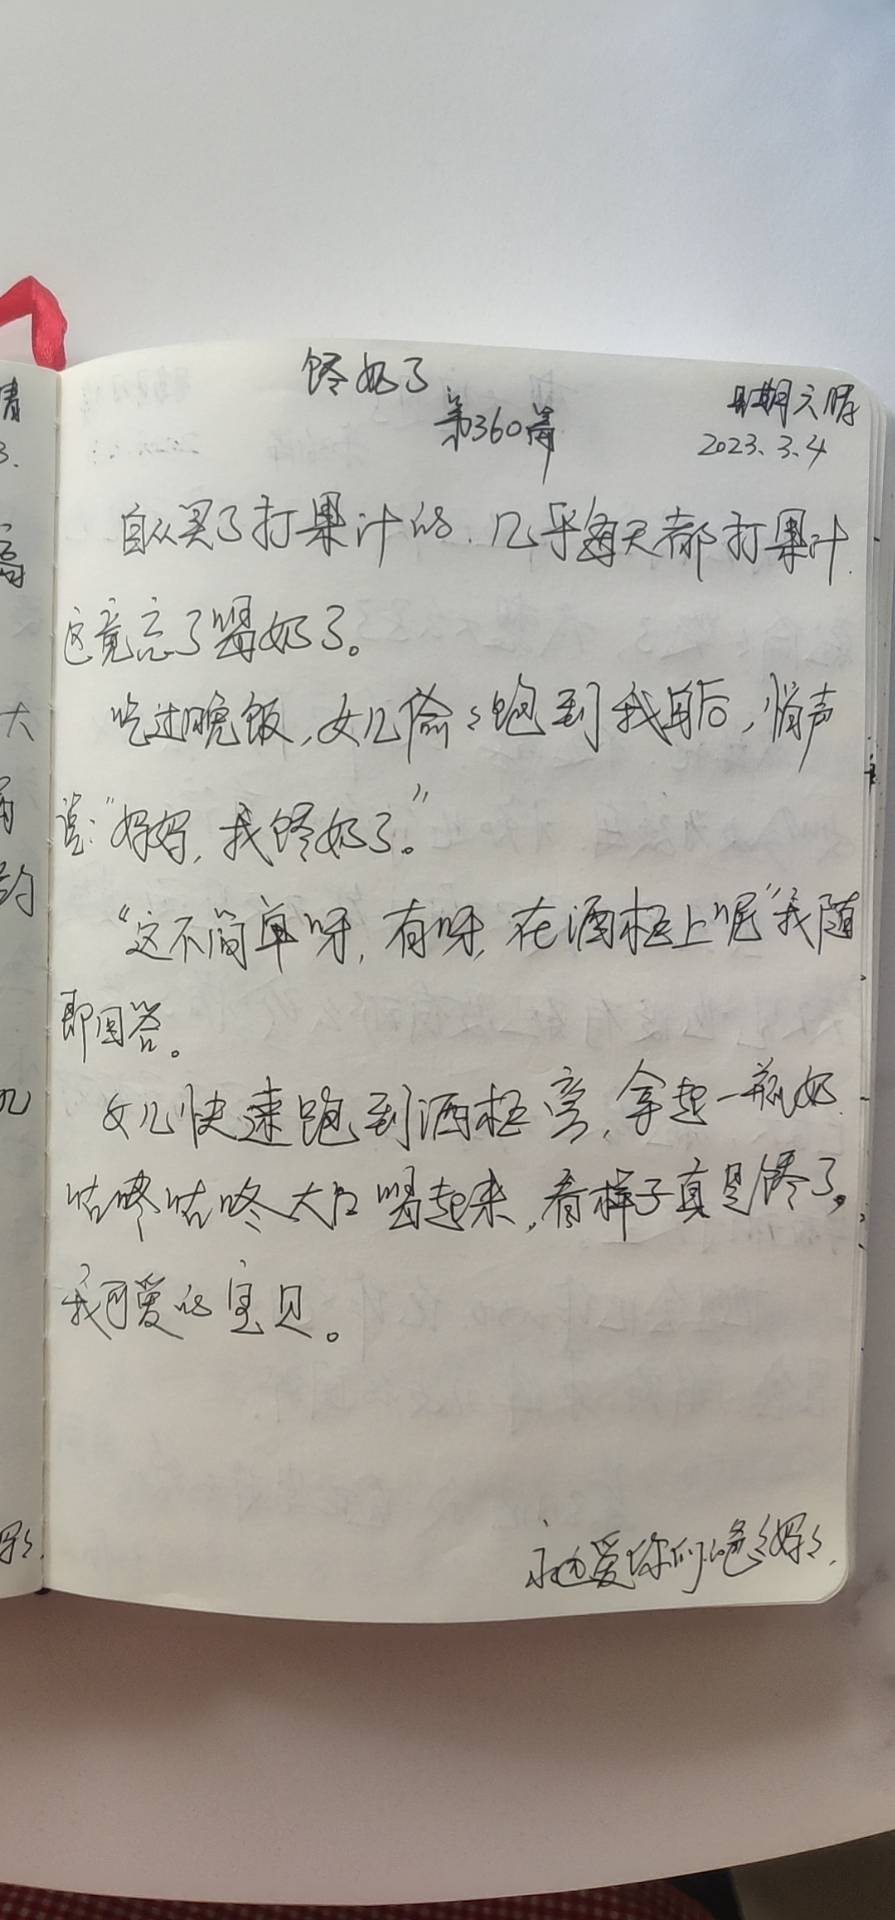 馋奶了
第360篇
星期六 晴
2023.3.4
自从买了打果汁的,几乎每天都打果汁
这竟忘了喝奶了。
吃过晚饭,女儿偷々跑到我身后,悄声
说:"妈妈,我馋奶了。"
"这不简单呀,有呀,在酒柜上呢"我随
即回答。
女儿快速跑到酒柜旁,拿起一瓶奶
咕咚咕咚大口喝起来,看样子真是馋了。
我可爱的宝贝。
永远爱你们的爸々妈々.